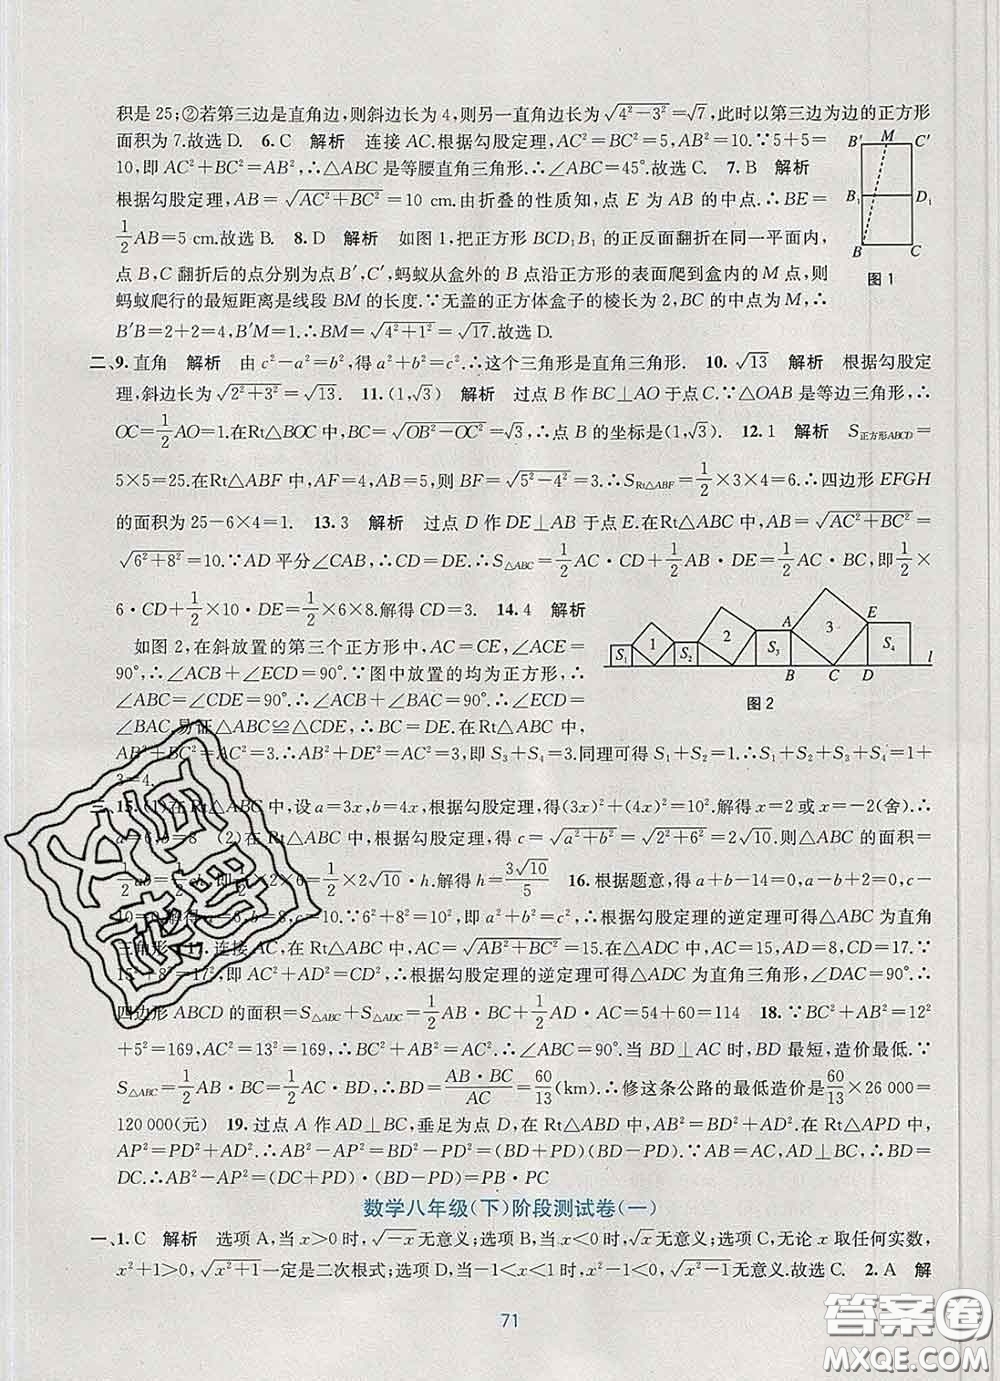 积是25;②若第三边是直角边,则斜边长为4,则另一直角边长为√(4²-3²)=√7,此时以第三边为边的正方形
面积为7.故选D. 6.C 解析 连接AC.根据勾股定理,AC²=BC²=5,AB²=10.∵5+5=
10,即AC²+BC²=AB²,∴△ABC是等腰直角三角形.∴∠ABC=45°.故选C. 7.B 解析
根据勾股定理,AB=√(AC²+BC²)=10 cm.由折叠的性质知,点E为AB的中点.∴BE=
1/2AB=5 cm.故选B. 8.D 解析 如图1,把正方形BCD₁B₁的正反面翻折在同一平面内,
点B,C翻折后的点分别为点B′,C′,蚂蚁从盒外的B点沿正方形的表面爬到盒内的M点,则
蚂蚁爬行的最短距离是线段BM的长度.∵无盖的正方体盒子的棱长为2,BC的中点为M,∴
B′B=2+2=4,B′M=1.∴BM=√(4²+1²)=√17.故选D.
B′ M C′
B₁ D₁
B C
图1
二、9.直角 解析 由c²-a²=b²,得a²+b²=c².∴这个三角形是直角三角形. 10.√13 解析 根据勾股定
理,斜边长为√(2²+3²)=√13. 11.(1,√3) 解析 过点B作BC⊥AO于点C.∵△OAB是等边三角形,∴
OC=1/2AO=1.在Rt△BOC中,BC=√(OB²-OC²)=√3,∴点B的坐标是(1,√3). 12.1 解析 S正方形ABCD=
5×5=25.在Rt△ABF中,AF=4,AB=5,则BF=√(5²-4²)=3.∴S Rt△ABF=1/2×3×4=6.∴四边形EFGH
的面积为25-6×4=1. 13.3 解析 过点D作DE⊥AB于点E.在Rt△ABC中,AB=√(AC²+BC²)=
√(6²+8²)=10.∵AD平分∠CAB,∴CD=DE.∴S△ABC=1/2AC·CD+1/2AB·DE=1/2AC·BC,即1/2×
6·CD+1/2×10·DE=1/2×6×8.解得CD=3. 14.4 解析
如图2,在斜放置的第三个正方形中,AC=CE,∠ACE=
90°.∴∠ACB+∠ECD=90°.∵图中放置的均为正方形,∴
∠ABC=∠CDE=90°.∴∠ACB+∠BAC=90°.∴∠ECD
=∠BAC,易证△ABC≌△CDE,∴BC=DE.在Rt△ABC中,
AB²+BC²=AC²=3,∴AB²+DE²=AC²=3,即S₃+S₄=3.同理可得S₁+S₂=1.∴S₁+S₂+S₃+S₄=1+
3=4.
S₁ 1 S₂ 2 S₃ 3 S₄ l
A E
B C D
图2
三、15.(1)在Rt△ABC中,设a=3x,b=4x,根据勾股定理,得(3x)²+(4x)²=10².解得x=2或x=-2(舍).∴
a=6,b=8 (2)在Rt△ABC中,根据勾股定理,得c=√(a²+b²)=√(2²+6²)=2√10.则△ABC的面积=
1/2ab=1/2ch=1/2×2×6=1/2×2√10·h.解得h=3√10/5 16.根据题意,得a+b-14=0,a-b+2=0,c-
10=0.解得a=6,b=8,c=10.∵6²+8²=10²,即a²+b²=c²,∴根据勾股定理的逆定理可得△ABC为直角
三角形 17.连接AC,在Rt△ABC中,AC=√(AB²+BC²)=15.在△ADC中,AD=8,CD=17.∵
15²+8²=17²,即AC²+AD²=CD²,∴根据勾股定理的逆定理可得△ADC为直角三角形,∠DAC=90°.∴
四边形ABCD的面积=S△ABC+S△ADC=1/2AB·BC+1/2AD·AC=54+60=114 18.∵BC²+AB²=12²
+5²=169,AC²=13²=169,∴BC²+AB²=AC².∴∠ABC=90°.当BD⊥AC时,BD最短,造价最低.∵
S△ABC=1/2AB·BC=1/2AC·BD,∴BD=AB·BC/AC=60/13(km).∴修这条公路的最低造价是60/13×26 000=
120 000(元) 19.过点A作AD⊥BC,垂足为点D,在Rt△ABD中,AB²=BD²+AD².在Rt△APD中,
AP²=PD²+AD².∴AB²-AP²=BD²+AD²-PD²-AD²=BD²-PD²=(BD+PD)(BD-PD).∵AB=AC,∴BD=
DC.∴AB²-AP²=(DC+PD)·(BD-PD)=PB·PC
数学八年级(下)阶段测试卷(一)
一、1.C 解析 选项A,当x>0时,√-x无意义;选项B,当x<0时,√x无意义;选项C,无论x取任何实数,
x²+1>0,√(x²+1)一定是二次根式;选项D,当-1<x<1时,x²-1<0,√(x²-1)无意义.故选C. 2.A 解
71
答案圈
MXQE.COM